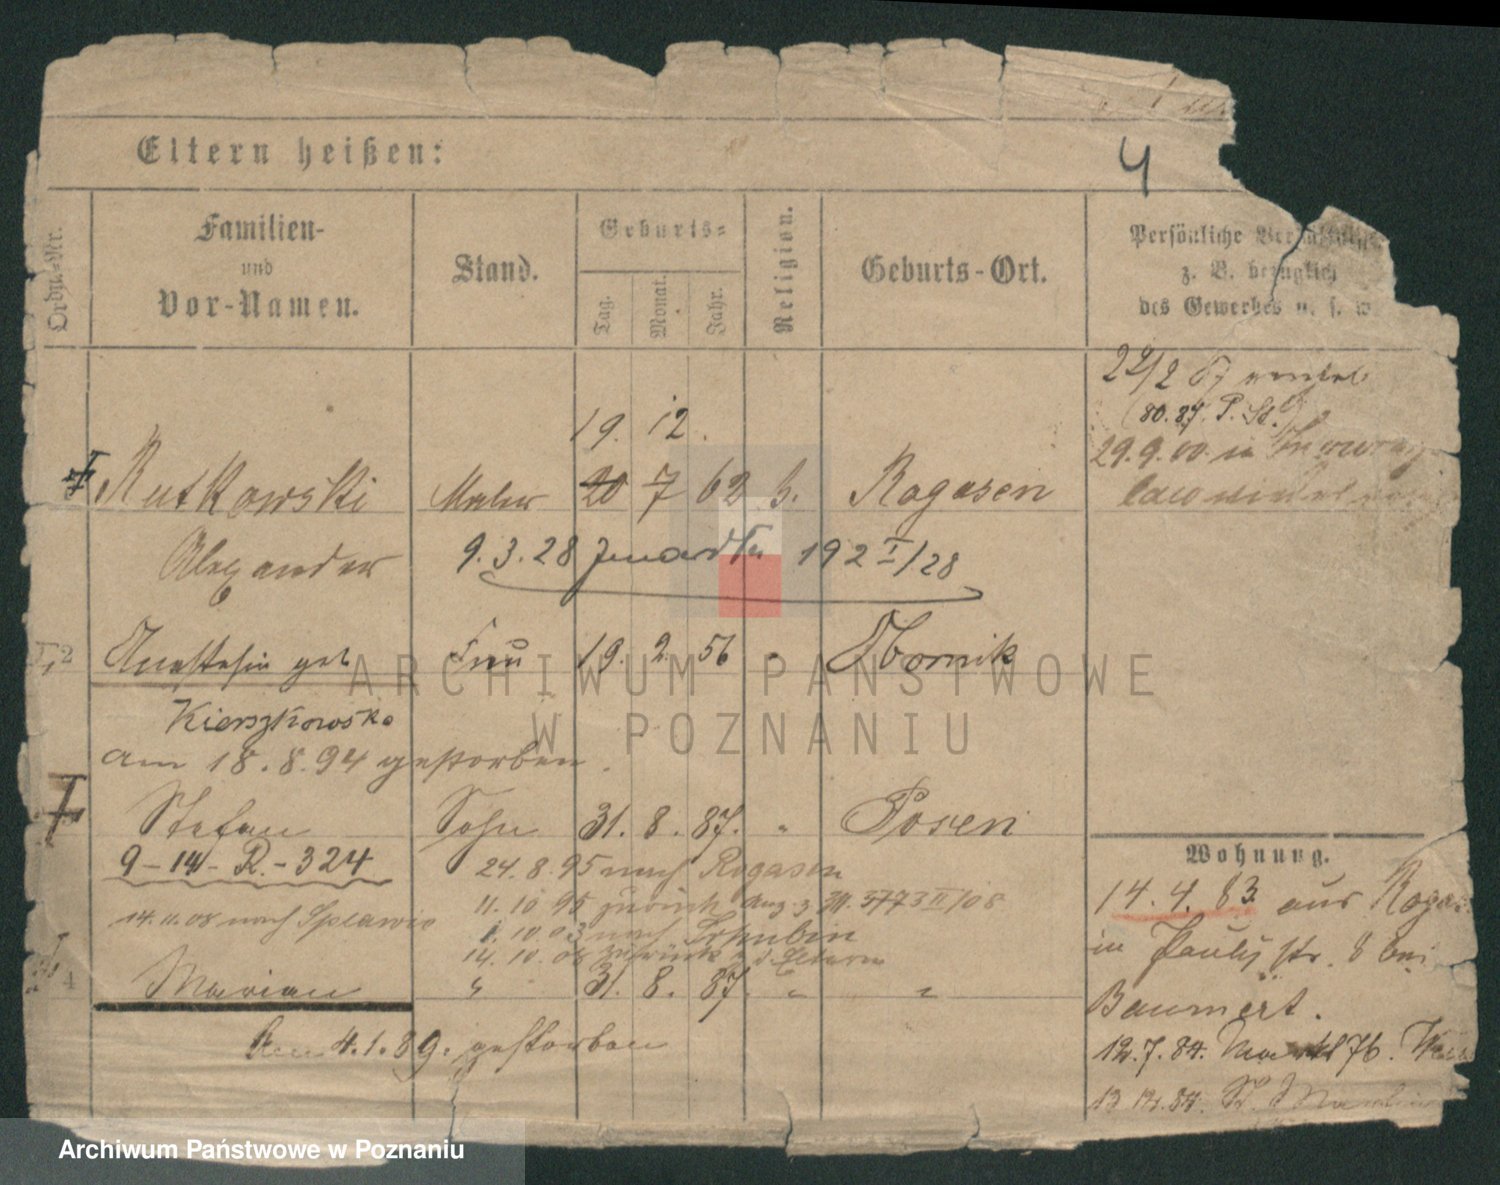 4
Eltern heißen:
Ordn.-Nr.
Familien-
und
Vor-Namen.
Stand.
Geburts-
Tag.
Monat.
Jahr.
Religion.
Geburts-Ort.
Persönliche
z. B. bezüglich
des Gewerbes u. s. w
22/2 87
(80.87. P. St.)
29.9.00. in
19. 12.
Rutkowski Maler 20 7 62 k. Rogasen
Alexander 9.3.28 192 I/28
2 Anastasia geb. Frau 19. 2. 56 " Obornik
Kierszkowska
am 18.8.94 gestorben.
Stefan Sohn 31. 8. 87. " Posen
9-14-R.-324
24.8.95 nach Rogasen
11.10.95 zurück Anz. z. 3773 II/08
14.11.08 nach Splawie
1.10.03 nach Schubin
14.10.08 zurück z. d. Eltern
4 Marian " 31. 8. 87. " "
Am 4.1.89. gestorben
Wohnung.
14.4.83 aus Rogas
in Paulistr. 8 bei
Baumert.
12.7.84. Markt 76.
13 12.84. St. Martin
ARCHIWUM PAŃSTWOWE
W POZNANIU
Archiwum Państwowe w Poznaniu